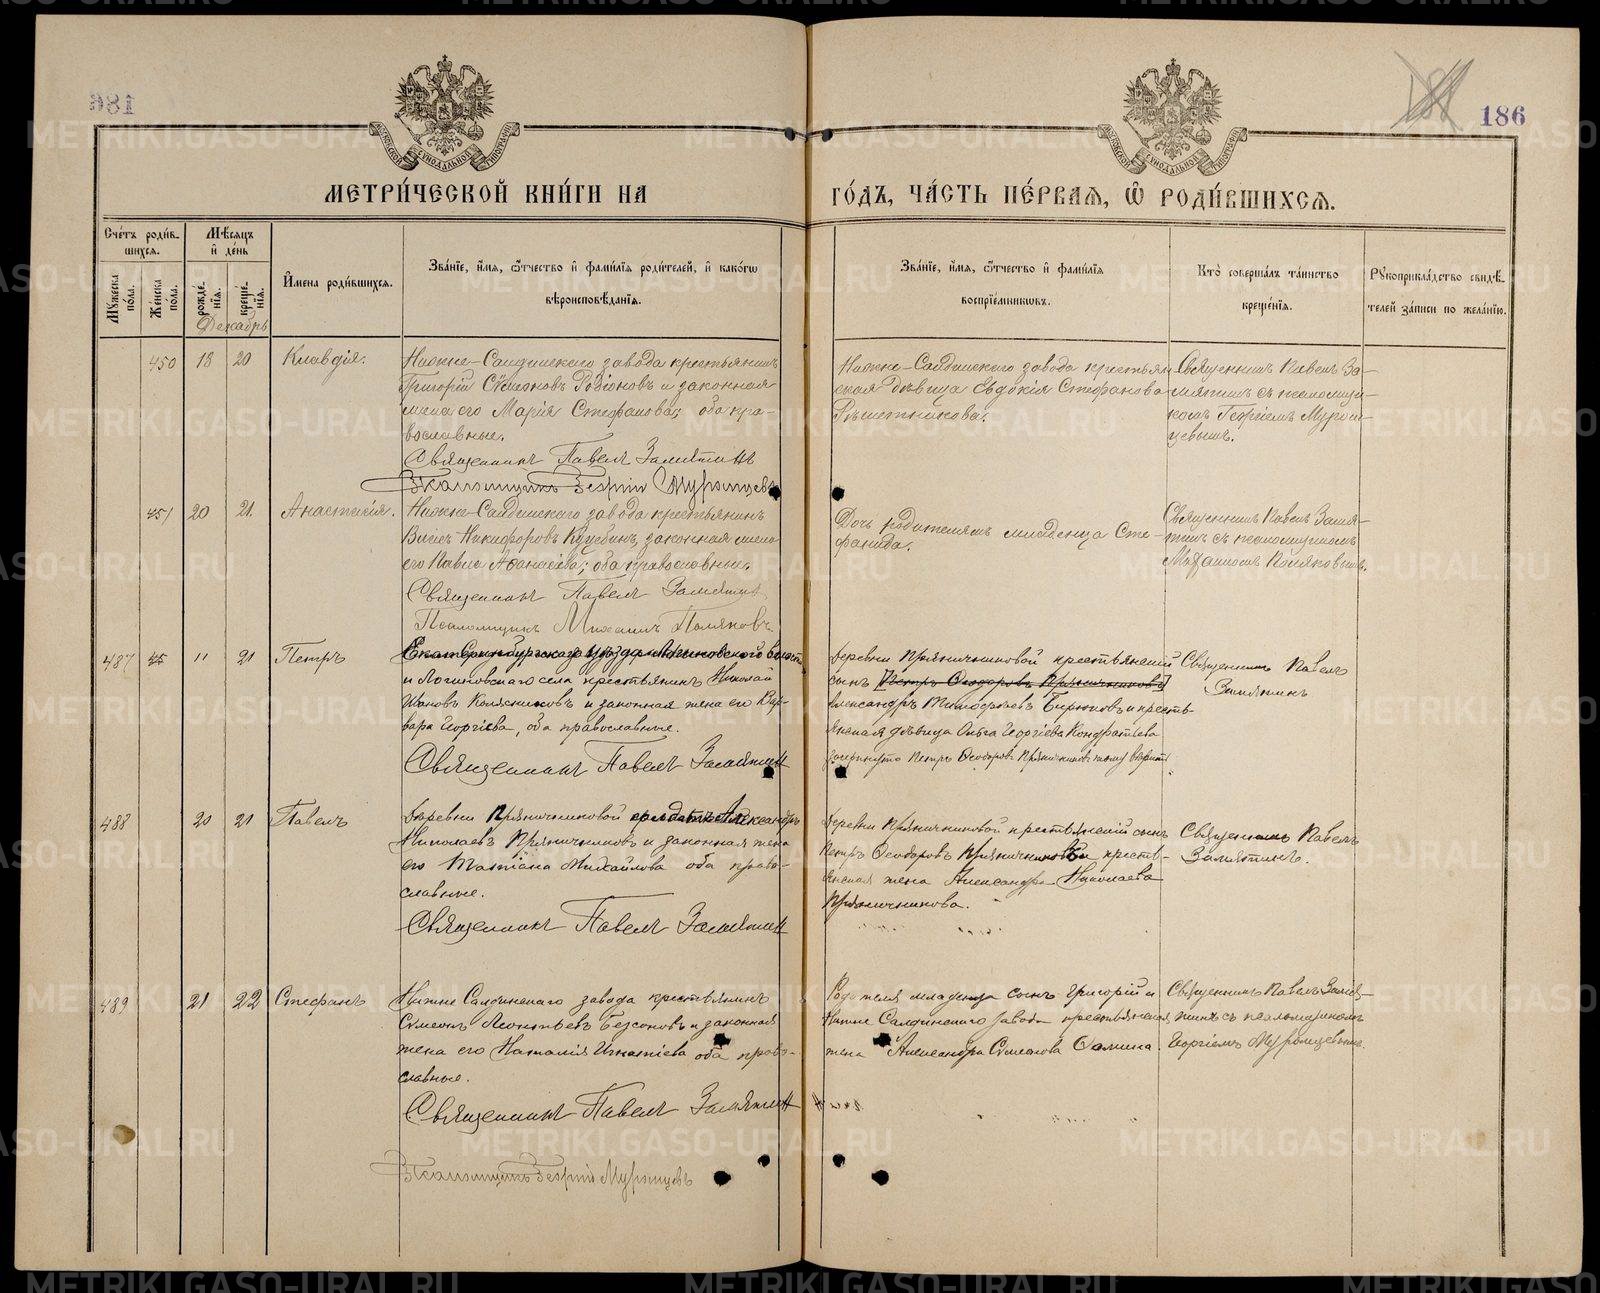 981
186
МОСКОВСКОЙ СѴНОДАЛЬНОЙ ТИПОГРАФІИ
МОСКОВСКОЙ СѴНОДАЛЬНОЙ ТИПОГРАФІИ
МЕТРИ́ЧЕСКОЙ КНИ́ГИ НА
ГО́ДЪ, ЧА́СТЬ ПЕ́РВАѦ, Ѡ РОДИ́ВШИХСѦ.
Сче́тъ роди́в-
шихся.
Му́жеска по́ла.
Же́нска по́ла.
Мѣ́сяцъ
и҆ де́нь
рожде́-
нїя.
креще́-
нїя.
Декабрь
И҆мена роди́вшихся.
Зва́нїе, и҆́мя, ѻ҆́тчество и҆ фами́лїя роди́телей, и҆ како́гѡ
вѣроисповѣ́данїя.
Зва́нїе, и҆́мя, ѻ҆́тчество и҆ фами́лїя
воспрїе́мникѡвъ.
Кто̀ соверша́лъ та́инство
креще́нїя.
Рꙋкоприкла́дство свидѣ́-
телей за́писи по жела́нїю.
450 18 20 Клавдія.
Нижне-Салдинскаго завода крестьянинъ
Григорій Сѵмеоновъ Родіоновъ и законная
жена его Марія Стефанова; оба пра-
вославные.
Священникъ Павелъ Замятинъ
Псаломщикъ Георгій Муромцевъ
Нижне-Салдинскаго завода крестьян-
ская дѣвица Евдокія Стефанова
Рѣшетникова.
Священникъ Павелъ За-
мятинъ съ псаломщи-
комъ Георгіемъ Муром-
цевымъ.
451 20 21 Анастасія.
Нижне-Салдинскаго завода крестьянинъ
Никифоровъ законная жена
его Павла Аѳанасіева; оба православные.
Священникъ Павелъ Замятинъ
Псаломщикъ Михаилъ Поляковъ
Дочь родителямъ младенца Сте-
фанида.
Священникъ Павелъ Замя-
тинъ съ псаломщикомъ
Михаиломъ Поляковымъ.
487 45 11 21 Петръ
Екатеринбургскаго уѣзда Логиновской волости
и Логиновскаго села крестьянинъ Николай
Ивановъ Колясниковъ и законная жена его Вар-
вара Георгіева, оба православные.
Священникъ Павелъ Замятинъ
Деревни Пряничниковой крестьянскій
сынъ [Петръ Ѳеодоровъ Пряничниковъ]
Александръ Тимоѳеевъ Бирюковъ и кресть-
янская дѣвица Ольга Георгіева Кондратьева
зачеркнуто Петръ Ѳеодоровъ Пряничниковъ
Священникъ Павелъ
Замятинъ
488 20 21 Павелъ
Деревни Пряничниковой солдатъ Александръ
Николаевъ Пряничниковъ и законная жена
его Татіана Михайлова оба право-
славные.
Священникъ Павелъ Замятинъ
Деревни Пряничниковой крестьянскій сынъ
Петръ Ѳеодоровъ Пряничниковъ и кресть-
янская жена Александра Николаева
Пряничникова.
Священникъ Павелъ
Замятинъ.
489 21 22 Стефанъ
Нижне Салдинскаго завода крестьянинъ
Сѵмеонъ Леонтьевъ Безсоновъ и законная
жена его Наталія Игнатіева оба право-
славные.
Священникъ Павелъ Замятинъ
Псаломщикъ Георгій Муромцевъ
Родителя младенца сынъ Григорій и
Нижне Салдинскаго завода крестьянская
жена Александра Сѵмеонова
Священникъ Павелъ Замя-
тинъ съ псаломщикомъ
Георгіемъ Муромцевымъ.
METRIKI.GASO-URAL.RU